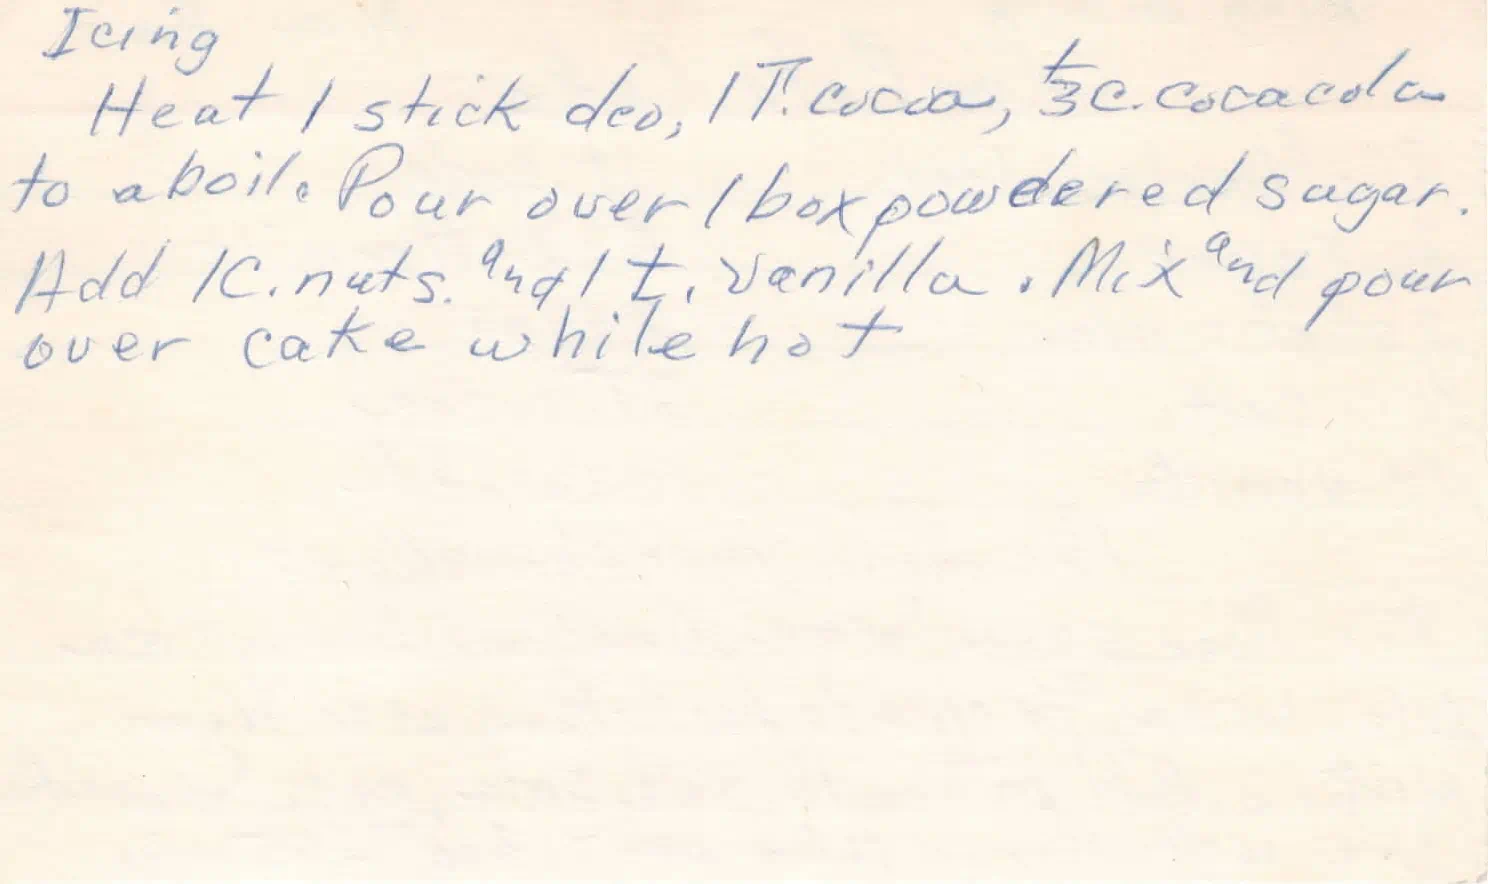 Icing
Heat 1 stick oleo, 1 T. cocoa, 1/3 c. cocacola
to a boil. Pour over 1 box powdered sugar.
Add 1 C. nuts. and 1 t. vanilla. Mix and pour
over cake while hot